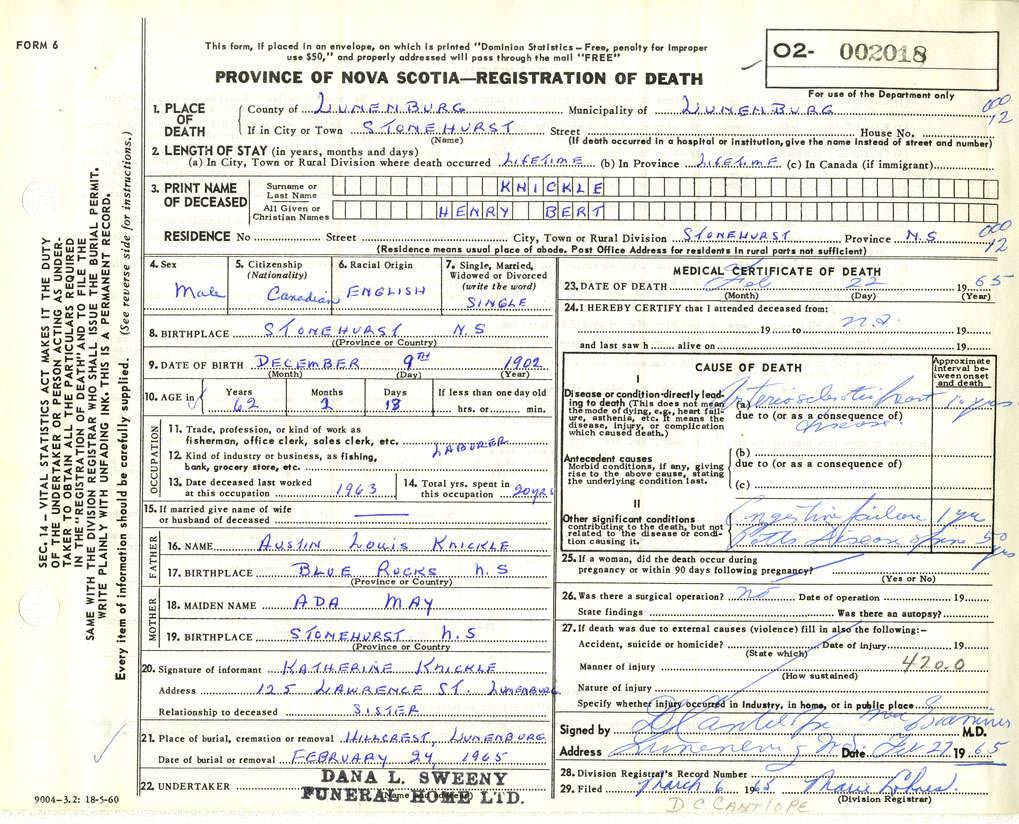 FORM 6
This form, if placed in an envelope, on which is printed "Dominion Statistics – Free, penalty for improper
use $50," and properly addressed will pass through the mail "FREE"
PROVINCE OF NOVA SCOTIA—REGISTRATION OF DEATH
02- 002018
For use of the Department only
000
12
1. PLACE OF DEATH
County of LUNENBURG Municipality of LUNENBURG
If in City or Town STONEHURST Street House No.
(Name) (If death occurred in a hospital or institution, give the name instead of street and number)
2. LENGTH OF STAY (in years, months and days)
(a) In City, Town or Rural Division where death occurred LIFETIME (b) In Province LIFETIME (c) In Canada (if immigrant)
3. PRINT NAME OF DECEASED
Surname or Last Name KNICKLE
All Given or Christian Names HENRY BERT
000
12
RESIDENCE No Street City, Town or Rural Division STONEHURST Province N.S
(Residence means usual place of abode. Post Office Address for residents in rural parts not sufficient)
4. Sex
Male
5. Citizenship
(Nationality)
Canadian
6. Racial Origin
ENGLISH
7. Single, Married,
Widowed or Divorced
(write the word)
SINGLE
8. BIRTHPLACE STONEHURST N.S
((Province or Country)
9. DATE OF BIRTH DECEMBER 9TH 1902
(Month) (Day) (Year)
10. AGE in
Years Months Days If less than one day old
62 2 13 hrs. or min.
OCCUPATION
11. Trade, profession, or kind of work as
fisherman, office clerk, sales clerk, etc.
LABORER
12. Kind of industry or business, as fishing,
bank, grocery store, etc.
13. Date deceased last worked
at this occupation 1963
14. Total yrs. spent in
this occupation 20yrs
15. If married give name of wife
or husband of deceased
FATHER
16. NAME AUSTIN LOUIS KNICKLE
17. BIRTHPLACE BLUE ROCKS N.S
(Province or Country)
MOTHER
18. MAIDEN NAME ADA MAY
19. BIRTHPLACE STONEHURST N.S
(Province or Country
20. Signature of informant KATHERINE KNICKLE
Address 125 LAWRENCE ST. LUNENBURG
Relationship to deceased SISTER
21. Place of burial, cremation or removal HILLCREST, LUNENBURG
Date of burial or removal FEBRUARY 24, 1965
22. UNDERTAKER DANA L. SWEENY
FUNERAL HOME LTD.
(Name and address)
MEDICAL CERTIFICATE OF DEATH
23. DATE OF DEATH Feb 22 1965
(Month) (Day) (Year)
24. I HEREBY CERTIFY that I attended deceased from:
n.a.
19 to 19
and last saw h alive on 19
CAUSE OF DEATH
Approximate
interval be-
tween onset
and death
I
Disease or condition directly lead-
ing to death (This does not mean
the mode of dying, e.g., heart fail-
ure, asthenia, etc. It means the
disease, injury, or complication
which caused death.)
(a) Arteriosclerotic heart 10 yrs
due to (or as a consequence of)
disease
Antecedent causes
Morbid conditions, if any, giving
rise to the above cause, stating
the underlying condition last.
(b)
due to (or as a consequence of)
(c)
II
Other significant conditions
contributing to the death, but not
related to the disease or condi-
tion causing it.
Congestive failure 1 yr
Potts disease spine 50
years
25. If a woman, did the death occur during
pregnancy or within 90 days following pregnancy?
(Yes or No)
26. Was there a surgical operation? no Date of operation 19
State findings Was there an autopsy?
27. If death was due to external causes (violence) fill in also the following:–
Accident, suicide or homicide? Date of injury 19
(State which)
Manner of injury 420.0
(How sustained)
Nature of injury
Specify whether injury occurred in Industry, in home, or in public place
Signed by D Cantelope Med Examiner M.D.
Address Lunenburg N.S. Date Feb 27 1965
28. Division Registrar's Record Number
29. Filed March 6 1965 Marie
(Division Registrar)
D C CANTLOPE
SEC. 14 – VITAL STATISTICS ACT MAKES IT THE DUTY
OF THE UNDERTAKER OR PERSON ACTING AS UNDER-
TAKER TO OBTAIN ALL THE PARTICULARS REQUIRED
IN THE "REGISTRATION OF DEATH" AND TO FILE THE
SAME WITH THE DIVISION REGISTRAR WHO SHALL ISSUE THE BURIAL PERMIT.
WRITE PLAINLY WITH UNFADING INK. THIS IS A PERMANENT RECORD.
Every item of information should be carefully supplied. (See reverse side for instructions.)
9004-3.2: 18-5-60